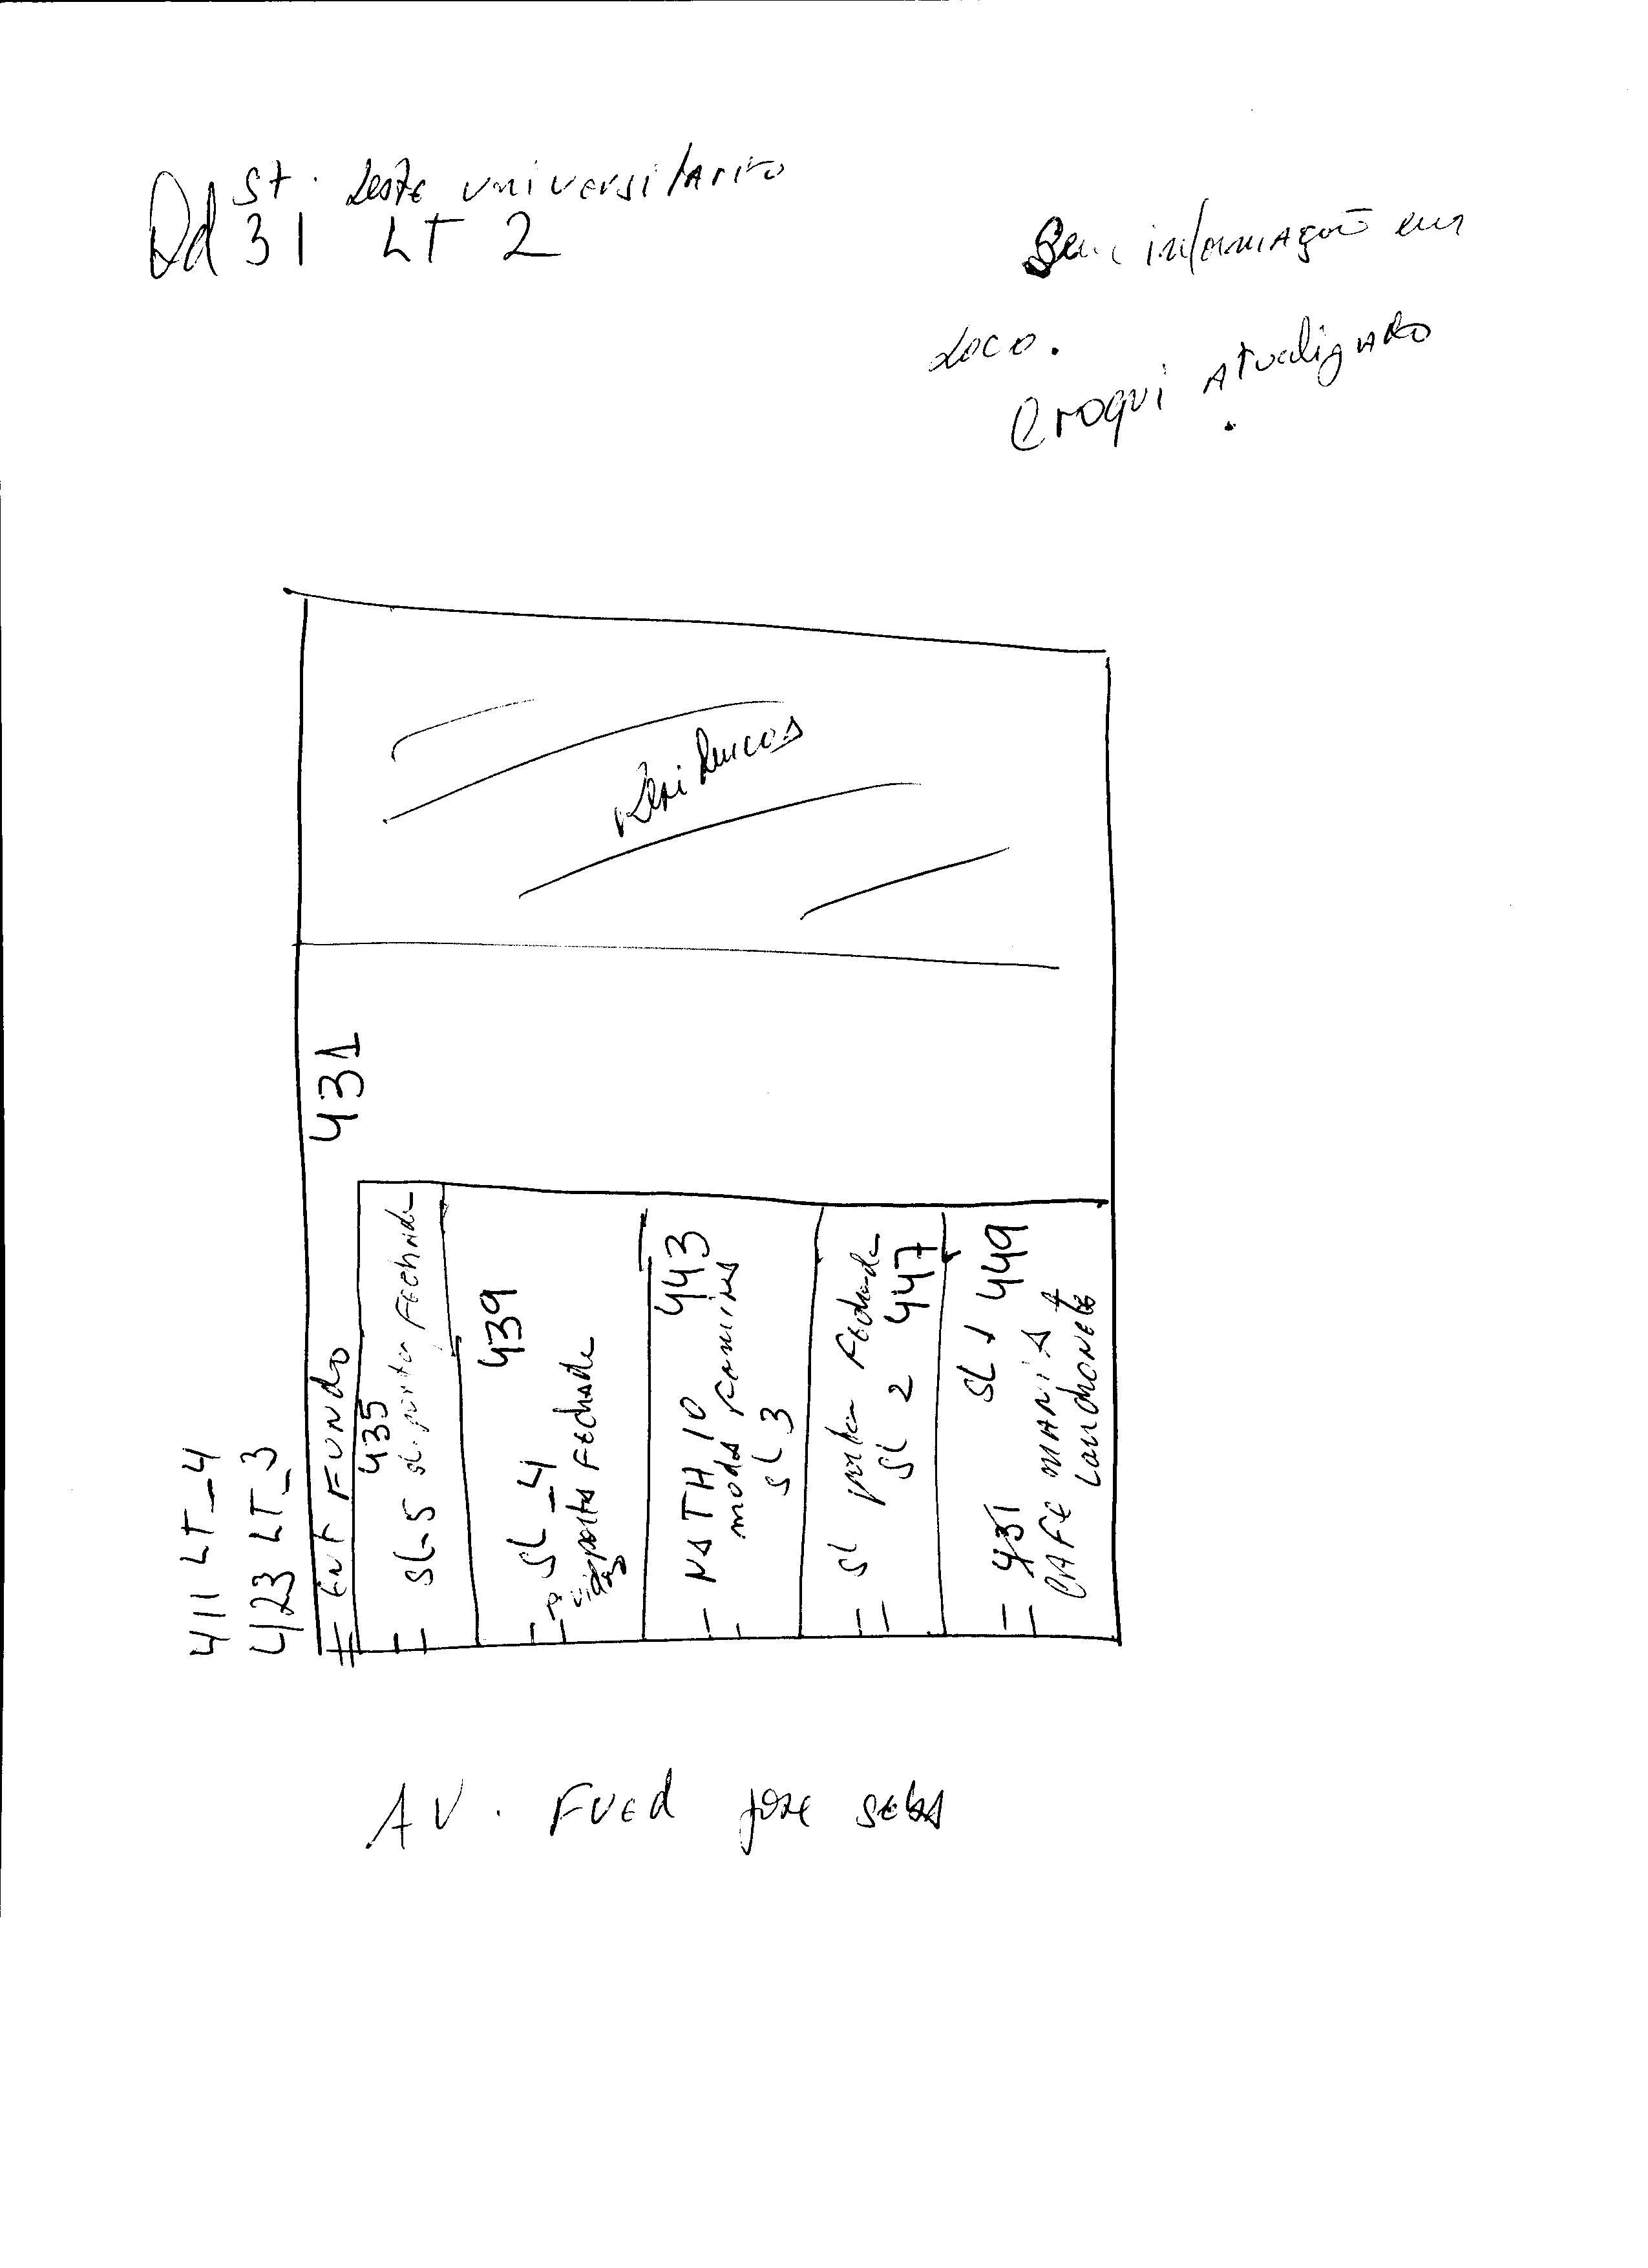 St. Leste universitario
Qd 31 LT 2
Sem informação em
Loco.
Croqui Atualizado.
431
411 LT_4
423 LT_3
Ent Fundo
435
SL-5 sl. porta Fechada
439
SL_4
portas Fechada
443
NATH 10
modas
SL 3
SL porta Fechada
SL 2 447
SL 1 449
431
CAFE MANIA
Lanchonete
AV. FUED JOSE SEBA